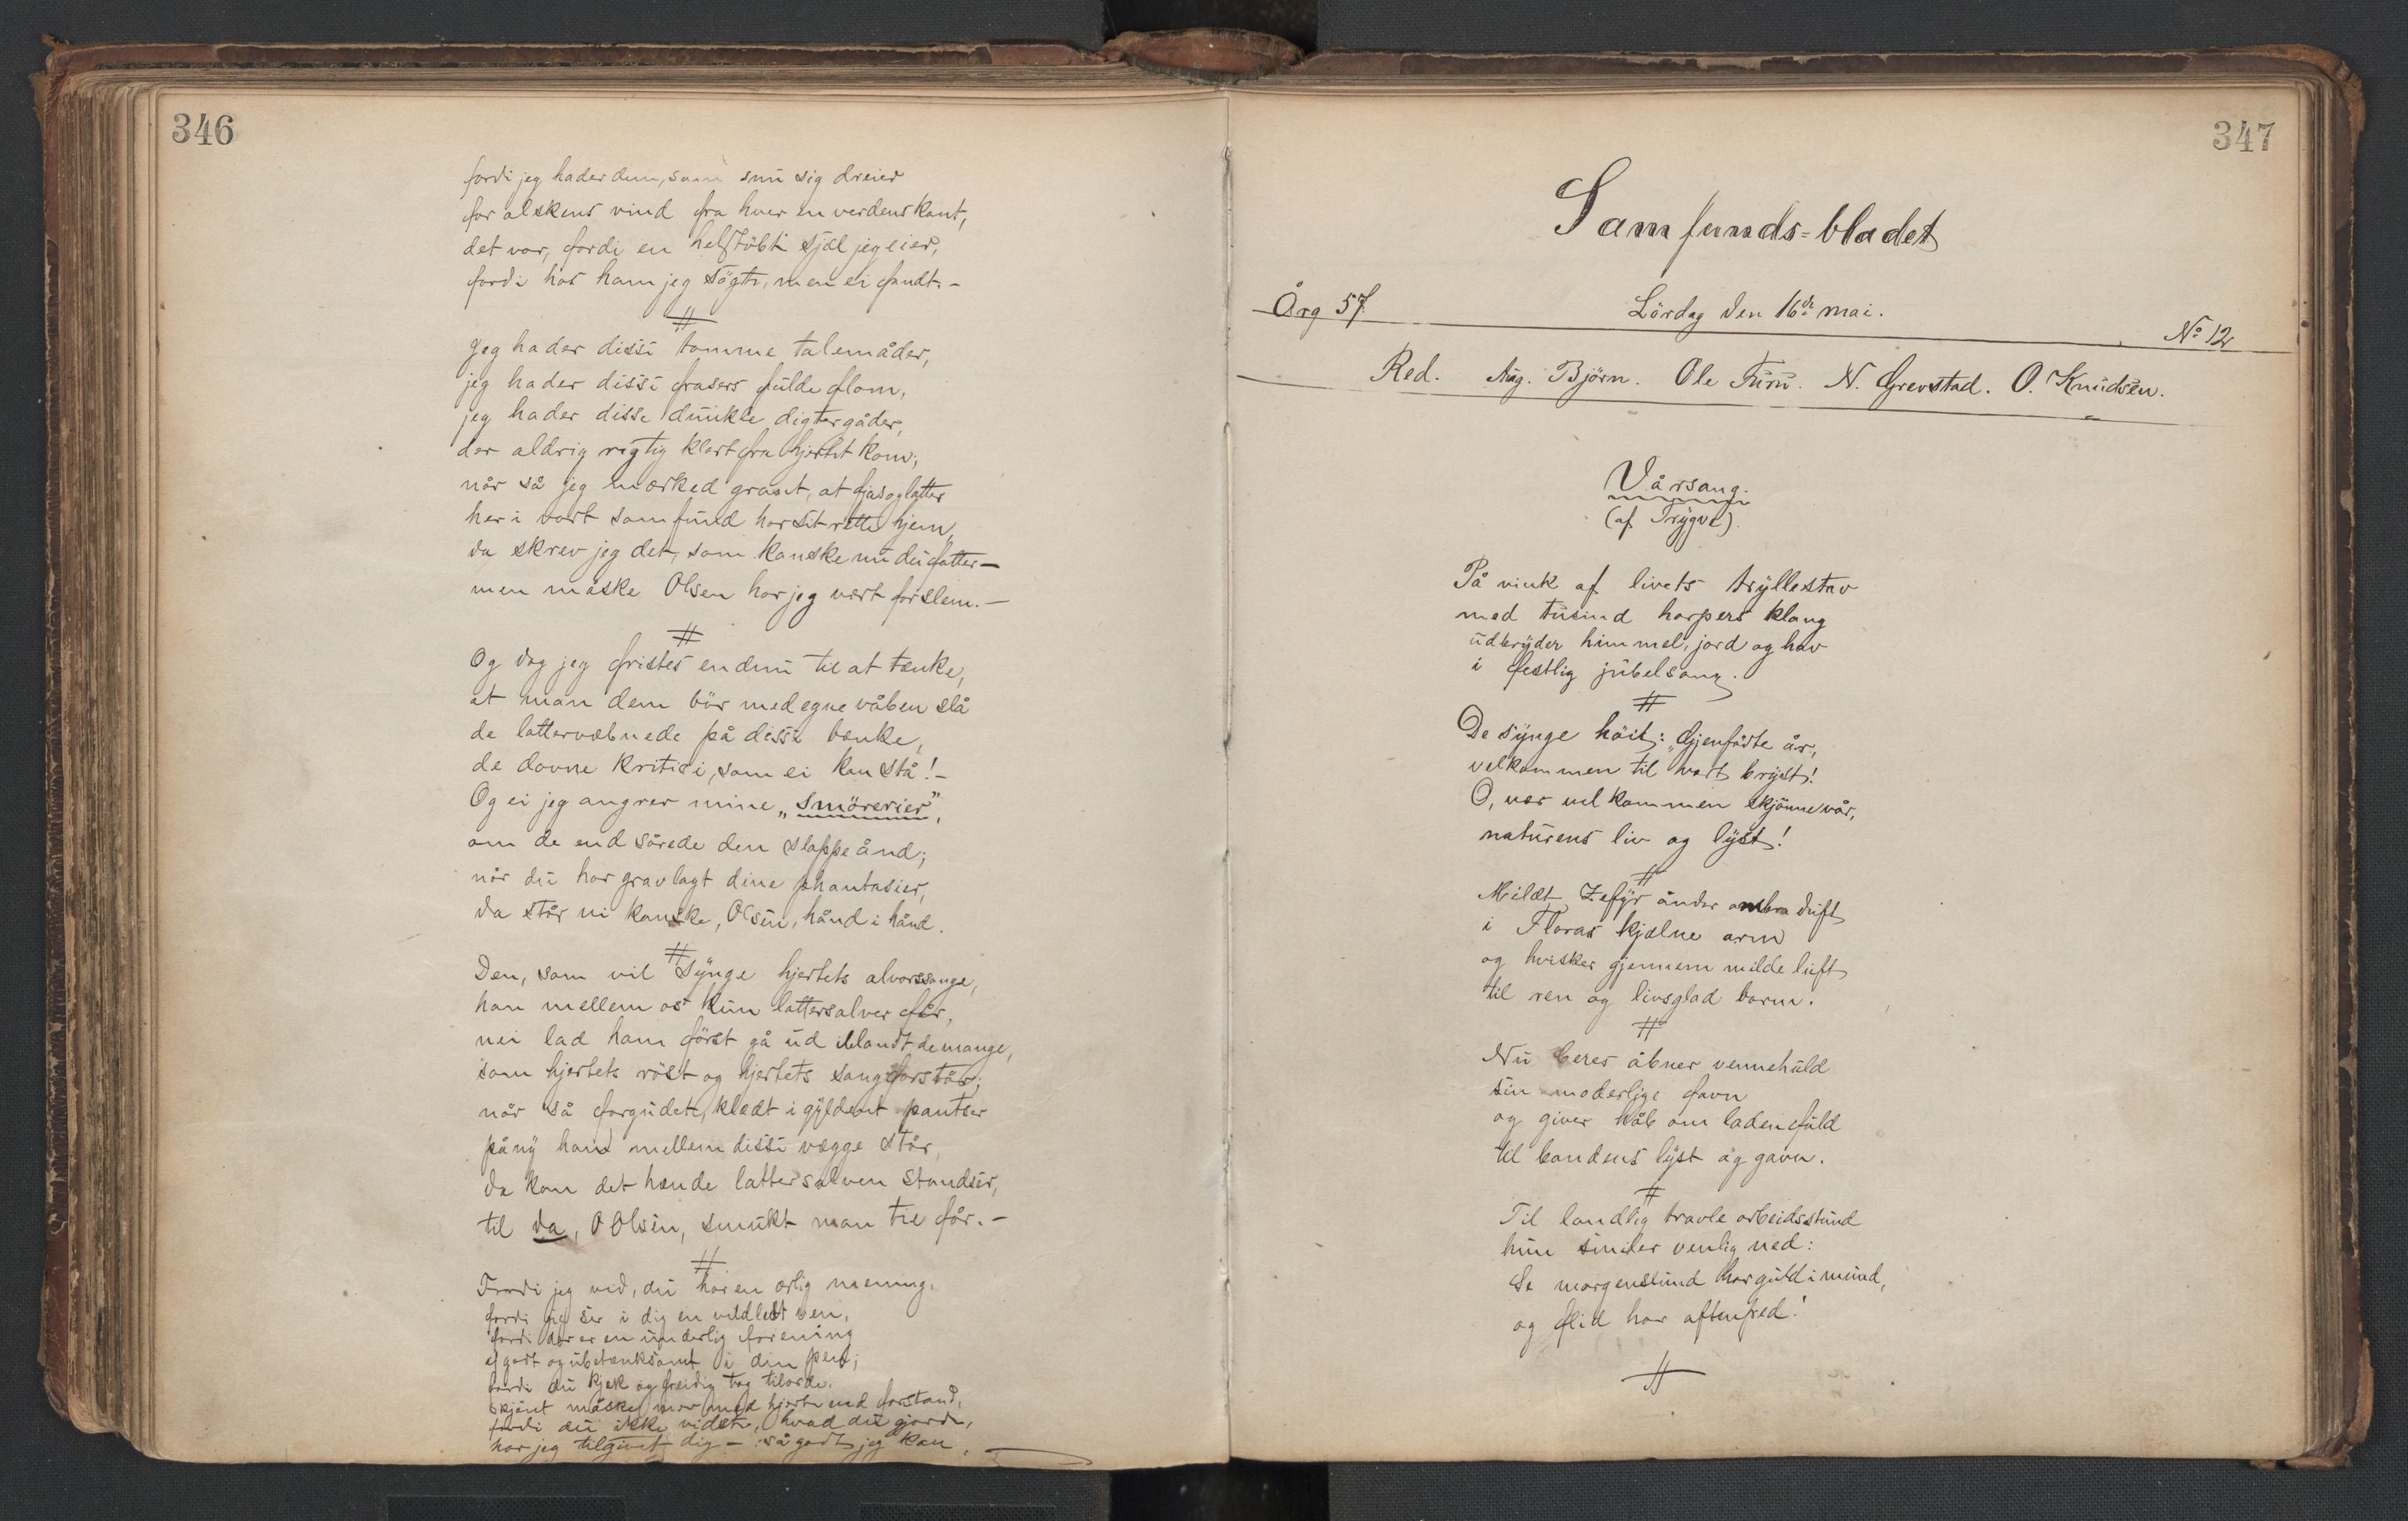 346
fordi jeg hader dem, som snu sig dreier
for alskens vind fra hver en verdenskant,
det var, fordi en helstøbt sjæl jeg eier,
fordi hos ham jeg søgte, men ei fandt. –
#
Jeg hader disse tomme talemåder,
jeg hader disse frasers fulde flom,
jeg hader disse dunkle digtergåder,
der aldrig rigtig klart fra hjertet kom;
når så jeg mærked grant, at fjas og latter
her i vort samfund har sit rette hjem,
da skrev jeg det, som kanske nu du fatter –
men måske Olsen har jeg vært for slem. –
#
Og dog jeg fristes endnu til at tænke,
at man dem bör med egne våben slå
de lattervæbnede på disse bænke,
de dovne kritici, som ei kan stå! –
Og ei jeg angrer mine „smörerier",
om de end sårede den slappe ånd;
når du har gravlagt dine phantasier,
da står vi kanske, Olsen, hånd i hånd.
#
Den, som vil synge hjertets alvorssange,
han mellem os kun lattersalver får,
nei lad ham først gå ud iblandt de mange,
som hjertets röst og hjertets sang forstår;
når så forgudet, klædt i gyldent pantser
påny han mellem disse vægge står,
da kan det hænde lattersalven standser,
til da, O Olsen, smukt man tie får. –
#
Fordi jeg ved, du har en ærlig mening,
fordi jeg ser i dig en vildledt ven,
fordi der er en underlig forening
af godt og ubetænksomt i din pen;
fordi du kjæk og freidig tog tilorde,
skjönt måske mer med hjerte end forstand,
fordi du ikke vidste, hvad du gjorde,
har jeg tilgivet dig – så godt jeg kan.
347
Samfunds-bladet
Årg 57. Lördag den 16de mai. No 12
Red. Aug. Björn. Ole Furu. N. Grevstad. O. Knudsen.
Vårsang.
(af Trygve).
På vink af livets tryllestav
med tusind harpers klang
udbryder himmel, jord og hav
i festlig jubelsang.
#
De synge höit: „Gjenfödte år,
velkommen til vort bryst!
O, vær velkommen skjönne vår,
naturens liv og lyst!
#
Mildt Zefyr ånder ambraduft
i Floras kjælne arm
og hvisker gjennem milde luft
til ren og livsglad barm.
#
Nu Ceres åbner vennehuld
sin moderlige favn
og giver håb om laden fuld
til bondens lyst og gavn.
#
Til landlig travle arbeidsstund
hun smiler venlig ned:
Se morgenstund har guld i mund,
og flid har aftenfred!
#